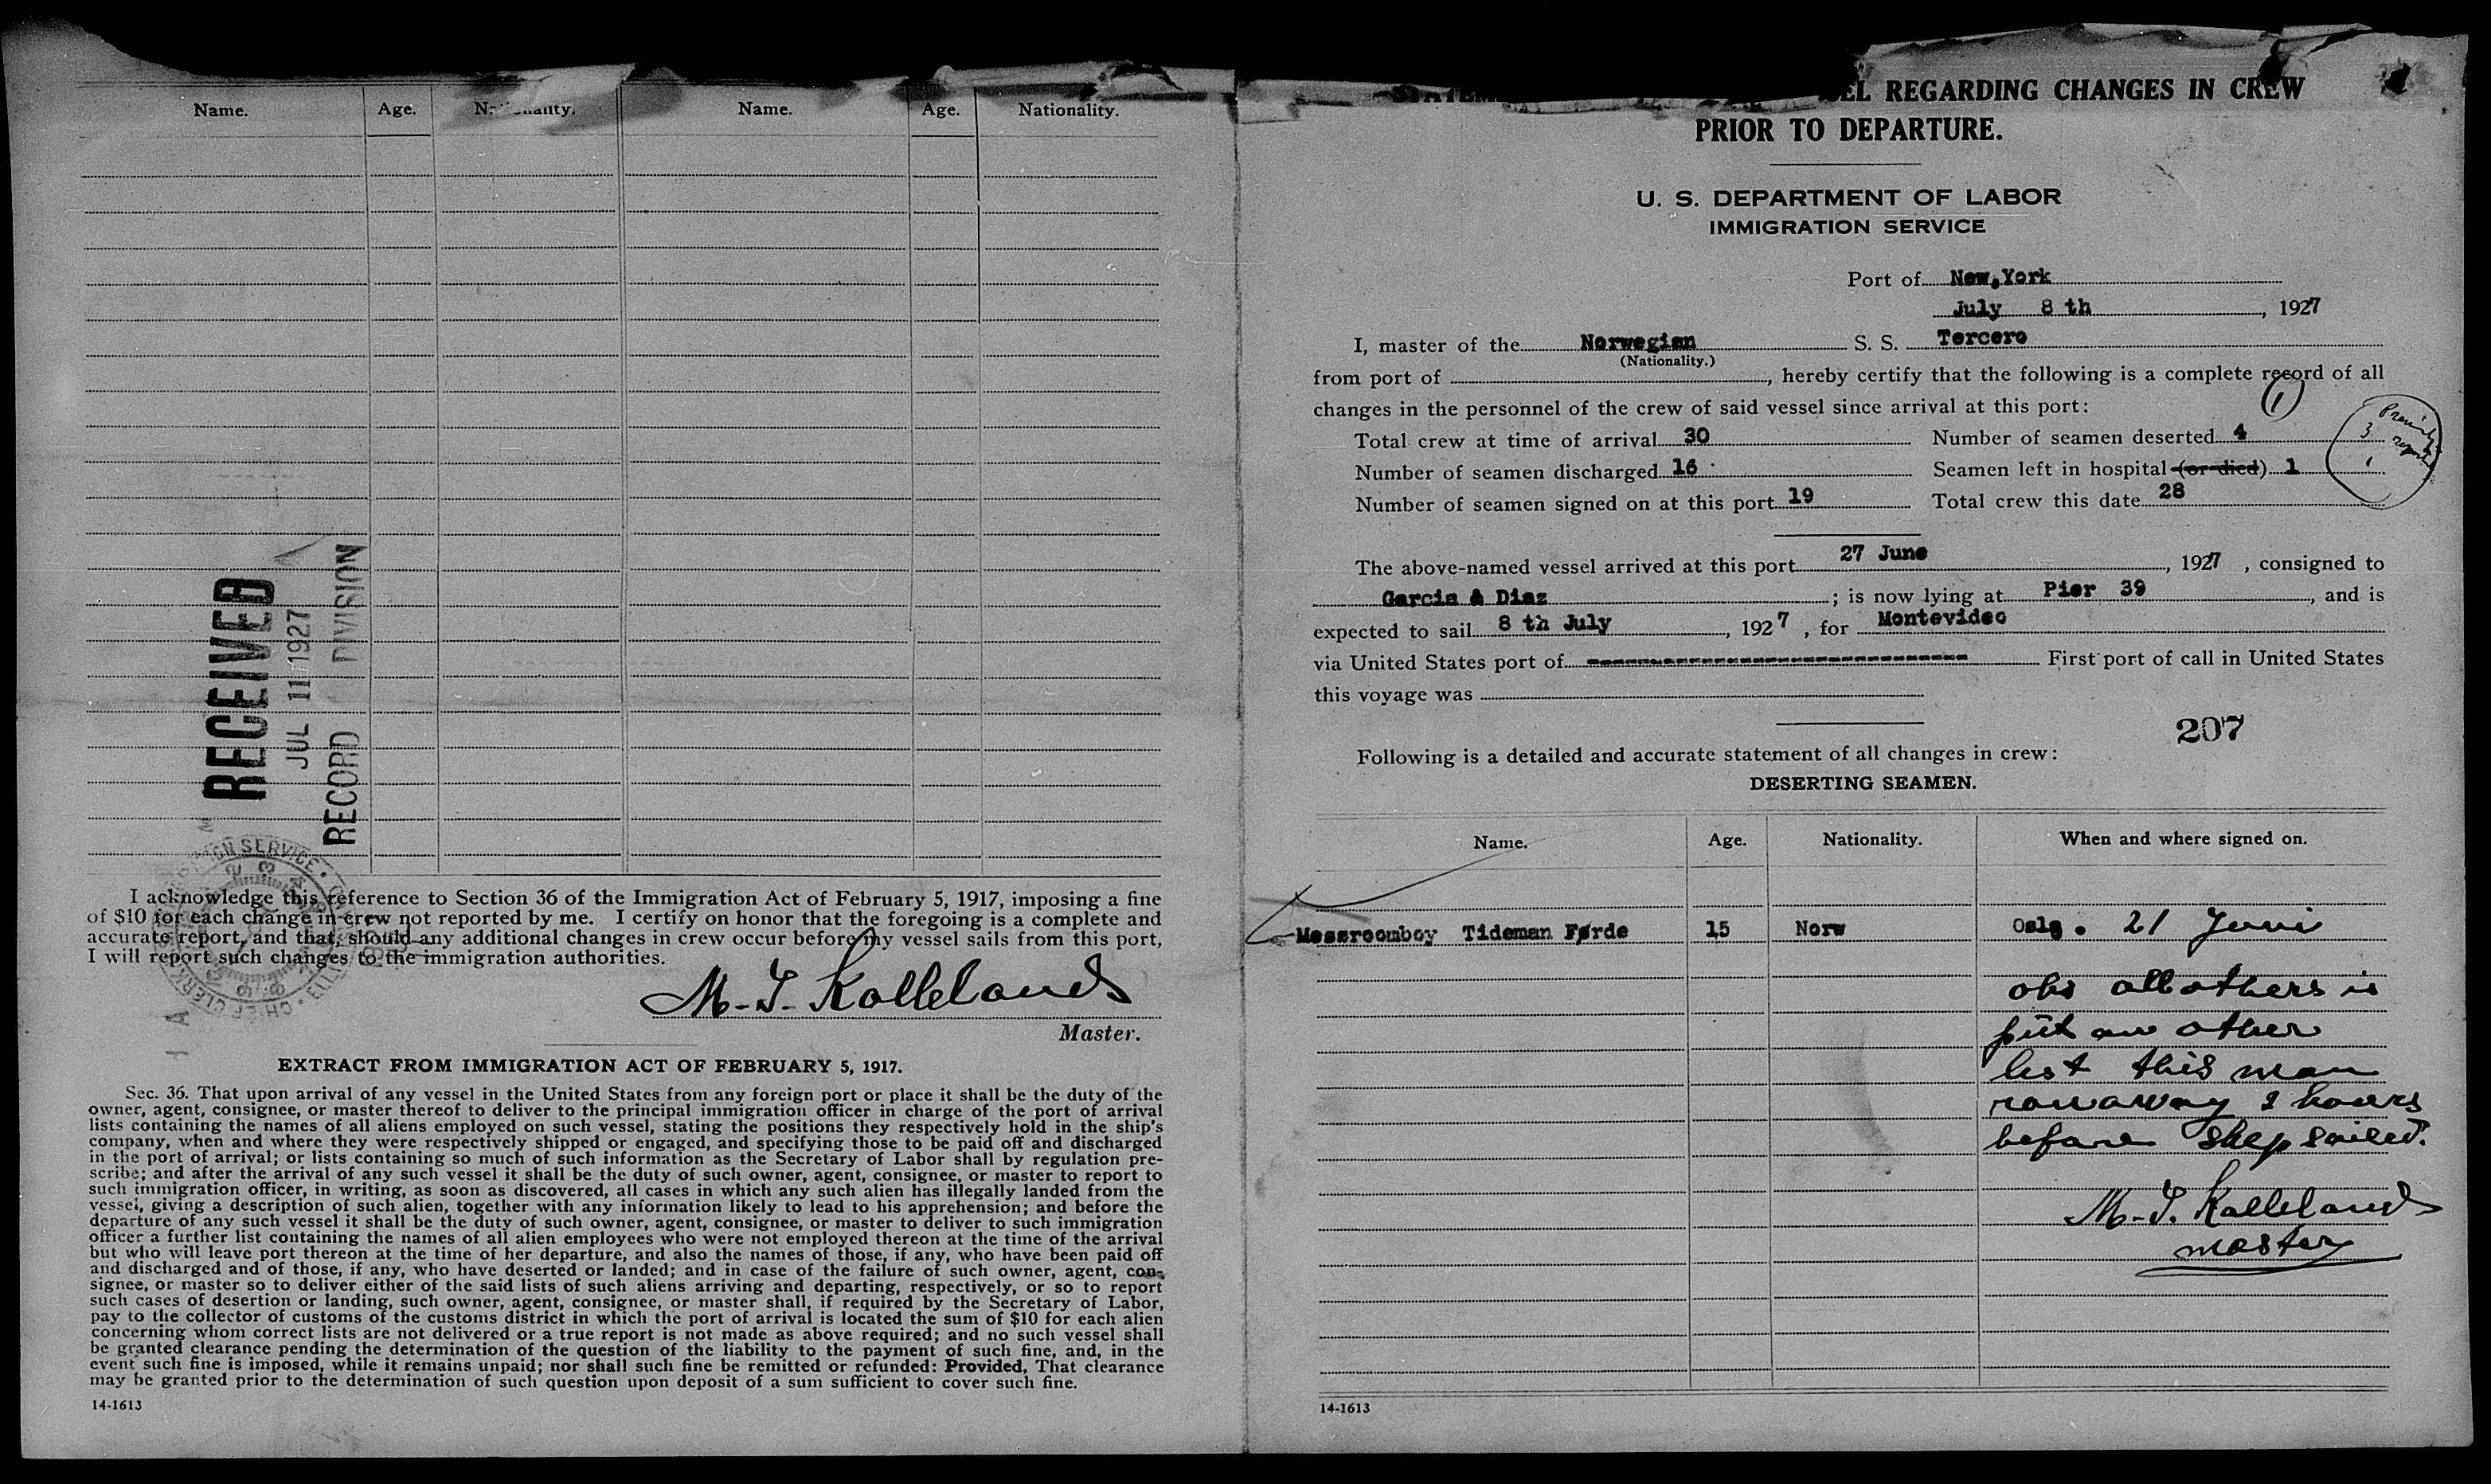 Name. Age. Name. Age. Nationality.
RECEIVED
JUL 11 1927
RECORD DIVISION
I acknowledge this reference to Section 36 of the Immigration Act of February 5, 1917, imposing a fine
of $10 for each change in crew not reported by me. I certify on honor that the foregoing is a complete and
accurate report, and that, should any additional changes in crew occur before my vessel sails from this port,
I will report such changes to the immigration authorities.
M. T. Kolleland
Master.
EXTRACT FROM IMMIGRATION ACT OF FEBRUARY 5, 1917.
Sec. 36. That upon arrival of any vessel in the United States from any foreign port or place it shall be the duty of the
owner, agent, consignee, or master thereof to deliver to the principal immigration officer in charge of the port of arrival
lists containing the names of all aliens employed on such vessel, stating the positions they respectively hold in the ship's
company, when and where they were respectively shipped or engaged, and specifying those to be paid off and discharged
in the port of arrival; or lists containing so much of such information as the Secretary of Labor shall by regulation pre-
scribe; and after the arrival of any such vessel it shall be the duty of such owner, agent, consignee, or master to report to
such immigration officer, in writing, as soon as discovered, all cases in which any such alien has illegally landed from the
vessel, giving a description of such alien, together with any information likely to lead to his apprehension; and before the
departure of any such vessel it shall be the duty of such owner, agent, consignee, or master to deliver to such immigration
officer a further list containing the names of all alien employees who were not employed thereon at the time of the arrival
but who will leave port thereon at the time of her departure, and also the names of those, if any, who have been paid off
and discharged and of those, if any, who have deserted or landed; and in case of the failure of such owner, agent, con-
signee, or master so to deliver either of the said lists of such aliens arriving and departing, respectively, or so to report
such cases of desertion or landing, such owner, agent, consignee, or master shall, if required by the Secretary of Labor,
pay to the collector of customs of the customs district in which the port of arrival is located the sum of $10 for each alien
concerning whom correct lists are not delivered or a true report is not made as above required; and no such vessel shall
be granted clearance pending the determination of the question of the liability to the payment of such fine, and, in the
event such fine is imposed, while it remains unpaid; nor shall such fine be remitted or refunded: Provided, That clearance
may be granted prior to the determination of such question upon deposit of a sum sufficient to cover such fine.
14-1613
REGARDING CHANGES IN CREW
PRIOR TO DEPARTURE.
U. S. DEPARTMENT OF LABOR
IMMIGRATION SERVICE
Port of New,York
July 8 th, 1927
I, master of the Norwegian S. S. Tercero
(Nationality.)
from port of , hereby certify that the following is a complete record of all
changes in the personnel of the crew of said vessel since arrival at this port:
(1)
Total crew at time of arrival 30 Number of seamen deserted 4
3
Number of seamen discharged 16 Seamen left in hospital (or died) 1
1
Number of seamen signed on at this port 19 Total crew this date 28
The above-named vessel arrived at this port 27 June, 1927, consigned to
Garcia & Diaz; is now lying at Pier 39, and is
expected to sail 8 th July, 1927, for Montevideo
via United States port of ---------- First port of call in United States
this voyage was
207
Following is a detailed and accurate statement of all changes in crew:
DESERTING SEAMEN.
Name. Age. Nationality. When and where signed on.
Messroomboy Tideman Førde 15 Norw Oslo. 21 Juni
obs all others is
put an other
list this man
ronaway 2 hours
before shep sailed.
M. T. Kolleland
master
14-1613